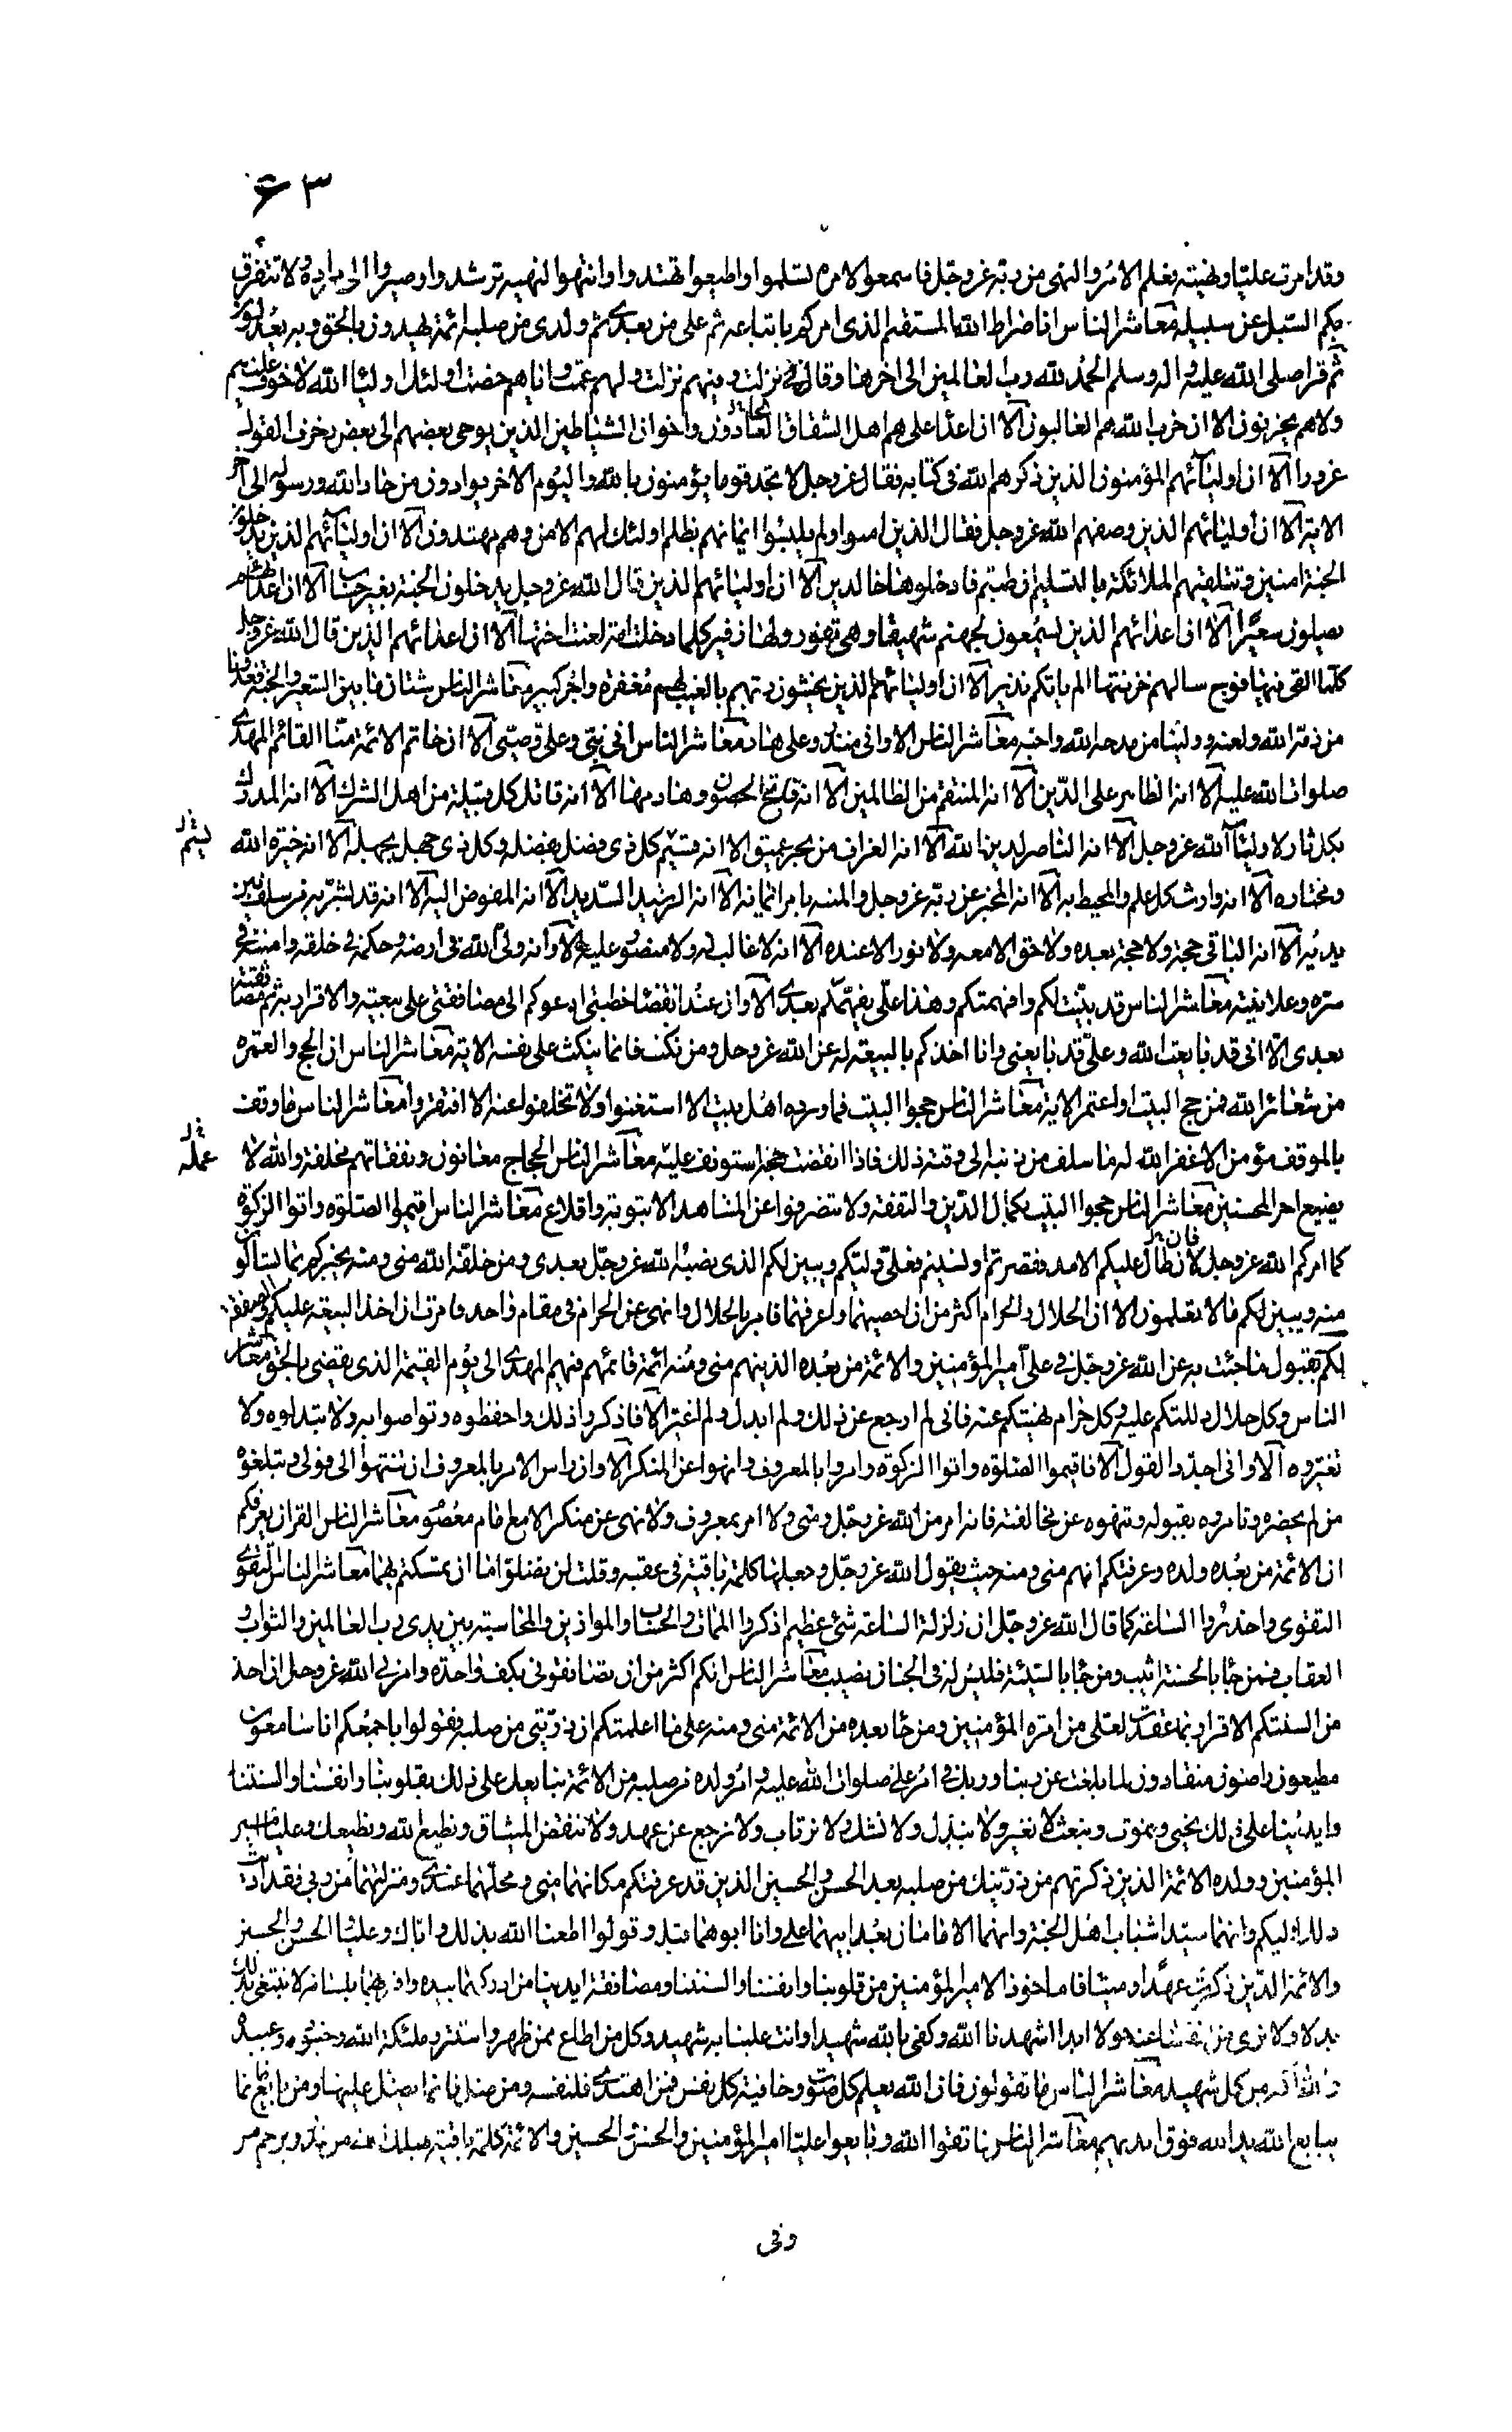 ٦٣
وقد امرت عليا ونهيته فعلم الامر والنهى من ربه عز وجل فاسمعوا لامره تسلموا واطيعوا تهتدوا وانتهوا لنهيه ترشدوا وصيروا الى مراده ولا تتفرق
بكم السبل عن سبيله معاشر الناس انا صراط الله المستقيم الذى امركم باتباعه ثم على من بعدى ثم ولدى من صلبه ائمة يهدون بالحق وبه يعدلون
ثم قرا صلى الله عليه واله وسلم الحمد لله رب العالمين الى اخرها وقال فى نزلت وفيهم نزلت ولهم عمت واياهم خصت اولئك اولياء الله لا خوف عليهم
ولا هم يحزنون الا ان حزب الله هم الغالبون الا ان اعداء على هم اهل الشقاق العادون واخوان الشياطين الذين يوحى بعضهم الى بعض زخرف القول
غرورا الا ان اوليائهم المؤمنون الذين ذكرهم الله فى كتابه فقال عز وجل لا تجد قوما يؤمنون بالله واليوم الاخر يوادون من حاد الله ورسوله الى اخر
الاية الا ان اوليائهم الذين وصفهم الله عز وجل فقال الذين امنوا ولم يلبسوا ايمانهم بظلم اولئك لهم الامن وهم مهتدون الا ان اوليائهم الذين يدخلون
الجنة امنين وتتلقيهم الملائكة بالتسليم ان طبتم فادخلوها خالدين الا ان اوليائهم الذين قال الله عز وجل يدخلون الجنة بغير حساب الا ان اعدائهم
يصلون سعيرا الا ان اعدائهم الذين يسمعون لجهنم شهيقا وهى تفور ولها زفير كلما دخلت امة لعنت اختها الا ان اعدائهم الذين قال الله عز وجل
كلما القى فيها فوج سالهم خزنتها الم ياتكم نذير الا ان اوليائهم الذين يخشون ربهم بالغيب لهم مغفرة واجر كبير معاشر الناس شتان ما بين السعير والجنة فعدونا
من ذمه الله ولعنه وولينا من مدحه الله واحبه معاشر الناس الا وانى منذر وعلى هاد معاشر الناس انى نبى وعلى وصيى الا ان خاتم الائمة منا القائم المهدى
صلوات الله عليه الا انه الظاهر على الدين الا انه المنتقم من الظالمين الا انه فاتح الحصون وهادمها الا انه قاتل كل قبيلة من اهل الشرك الا انه المدرك
بكل ثار لاولياء الله عز وجل الا انه الناصر لدين الله الا انه الغراف من بحر عميق الا انه قسيم كل ذى فضل بفضله وكل ذى جهل بجهله الا انه خيرة الله
ومختاره الا انه وارث كل علم والمحيط به الا انه المخبر عن ربه عز وجل والمنبه بامر ايمانه الا انه الرشيد السديد الا انه المفوض اليه الا انه قد بشر به من سلف بين
يديه الا انه الباقى حجة ولا حجة بعده ولا حق الا معه ولا نور الا عنده الا انه لا غالب له ولا منصور عليه الا وانه ولى الله فى ارضه وحكمه فى خلقه وامينه فى
سره وعلانيته معاشر الناس قد بينت لكم وافهمتكم وهذا على يفهمكم بعدى الا وان عند انقضاء خطبتى ادعوكم الى مصافقتى على بيعته والاقرار به ثم مصافقته
بعدى الا انى قد بايعت الله وعلى قد بايعنى وانا اخذكم بالبيعة له عن الله عز وجل ومن نكث فانما ينكث على نفسه الاية معاشر الناس ان الحج والعمرة
من شعائر الله فمن حج البيت او اعتمر الاية معاشر الناس حجوا البيت فما ورده اهل بيت الا استغنوا ولا تخلفوا عنه الا افتقروا معاشر الناس ما وقف
بالموقف مؤمن الا غفر الله له ما سلف من ذنبه الى وقته ذلك فاذا انقضت حجته استونف عليه معاشر الناس الحجاج معانون ونفقاتهم مخلفة والله لا
يضيع اجر المحسنين معاشر الناس حجوا البيت بكمال الدين والتفقه ولا تنصرفوا عن المشاهد الا بتوبة واقلاع معاشر الناس اقيموا الصلوة واتوا الزكوة
كما امركم الله عز وجل لان طال عليكم الامد فقصرتم او نسيتم فعلى وليكم ويبين لكم الذى نصبه الله عز وجل بعدى ومن خلقه الله منى ومنه يخبركم بما تسالون
منه ويبين لكم ما لا تعلمون الا ان الحلال والحرام اكثر من ان احصيهما واعرفهما فامر بالحلال وانهى عن الحرام فى مقام واحد فامرت ان اخذ البيعة عليكم والصفقة
لكم بقبول ما جئت به عن الله عز وجل فى على امير المؤمنين والائمة من بعده الذين هم منى ومنه ائمة قائمهم فيهم المهدى الى يوم القيمة الذى يقضى بالحق معاشر
الناس وكل حلال دللتكم عليه وكل حرام نهيتكم عنه فانى لم ارجع عن ذلك ولم ابدل ولم اغير الا فاذكروا ذلك واحفظوه وتواصوا به ولا تبدلوه ولا
تغيروه الا وانى اجدد القول الا فاقيموا الصلوة واتوا الزكوة وامروا بالمعروف وانهوا عن المنكر الا وان راس الامر بالمعروف ان تنتهوا الى قولى وتبلغوه
من لم يحضره وتامروه بقبوله وتنهوه عن مخالفته فانه امر من الله عز وجل ومنى ولا امر بمعروف ولا نهى عن منكر الا مع امام معصوم معاشر الناس القران يعرفكم
ان الائمة من بعده ولده وعرفتكم انهم منى ومنه حيث يقول الله عز وجل وجعلها كلمة باقية فى عقبه وقلت لن تضلوا ما ان تمسكتم بهما معاشر الناس التقوى
التقوى واحذروا الساعة كما قال الله عز وجل ان زلزلة الساعة شئ عظيم اذكروا الممات والحساب والموازين والمحاسبة بين يدى رب العالمين والثواب و
العقاب فمن جاء بالحسنة اثيب ومن جاء بالسيئة فليس له فى الجنان نصيب معاشر الناس انكم اكثر من ان تصافقونى بكف واحدة وامرنى الله عز وجل ان اخذ
من السنتكم الاقرار بما عقدت لعلى من امرة المؤمنين ومن جاء بعده من الائمة منى ومنه على ما اعلمتكم ان ذريتى من صلبه فقولوا باجمعكم انا سامعون
مطيعون راضون منقادون لما بلغت عن ربنا وربك فى امر على صلوات الله عليه وامر ولده من صلبه من الائمة نبايعك على ذلك بقلوبنا وانفسنا والسنتنا
وايدينا على ذلك نحيى ونموت ونبعث لا نغير ولا نبدل ولا نشك ولا نرتاب ولا نرجع عن عهد ولا ننقض الميثاق ونطيع الله ونطيعك وعليا امير
المؤمنين وولده الائمة الذين ذكرتهم من ذريتك من صلبه بعد الحسن والحسين الذين قد عرفتكم مكانهما منى ومحلهما عندى ومنزلتهما من ربى فقد اديت
ذلك اليكم وانهما سيدا شباب اهل الجنة وانهما الامامان بعد ابيهما على وانا ابوهما قبله وقولوا اطعنا الله بذلك واياك وعليا والحسن والحسين
والائمة الذين ذكرت عهدا وميثاقا ماخوذا لامير المؤمنين من قلوبنا وانفسنا والسنتنا ومصافقة ايدينا من ادركهما بيده واقر بهما بلسانه لا نبتغى بذلك
بدلا ولا نرى من انفسنا عنه حولا ابدا اشهدنا الله وكفى بالله شهيدا وانت علينا به شهيد وكل من اطاع ممن ظهر واستتر وملئكة الله وجنوده وعبيده
والله اكبر من كل شهيد معاشر الناس ما تقولون فان الله يعلم كل صوت وخافية كل نفس فمن اهتدى فلنفسه ومن ضل فانما يضل عليها ومن بايع فانما
يبايع الله يد الله فوق ايديهم معاشر الناس فاتقوا الله وبايعوا عليا امير المؤمنين والحسن والحسين والائمة كلمة باقية يهلك الله من غدر ويرحم من
وفى